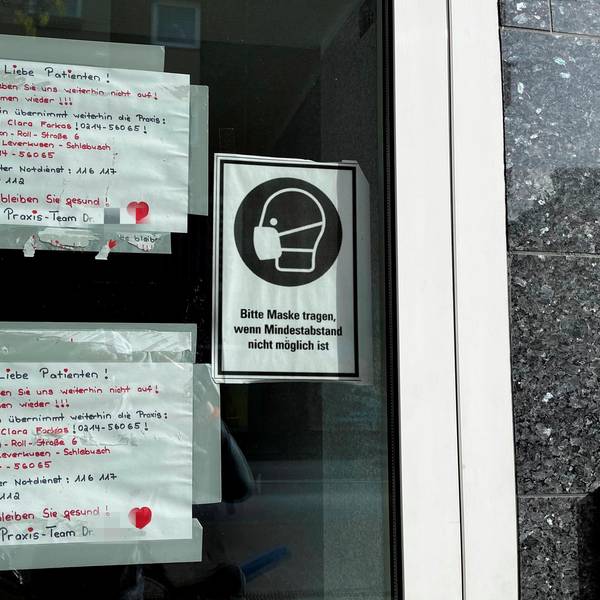 Liebe Patienten !
ben Sie uns weiterhin nicht auf!
men wieder !!!
in übernimmt weiterhin die Praxis:
Clara Farkas ! 0214-56065 !
on - Roll - Straße 6
Leverkusen - Schlebusch
14 - 56065
ter Notdienst : 116 117
112
bleiben Sie gesund !
Praxis-Team Dr.
es bleibe
Bitte Maske tragen,
wenn Mindestabstand
nicht möglich ist
Liebe Patienten !
en Sie uns weiterhin nicht auf!
en wieder !!!
übernimmt weiterhin die Praxis:
Clara Farkas ! 0214-56065 !
- Roll - Straße 6
Leverkusen - Schlebusch
- 56065
er Notdienst : 116 117
112
leiben Sie gesund !
Praxis-Team Dr.